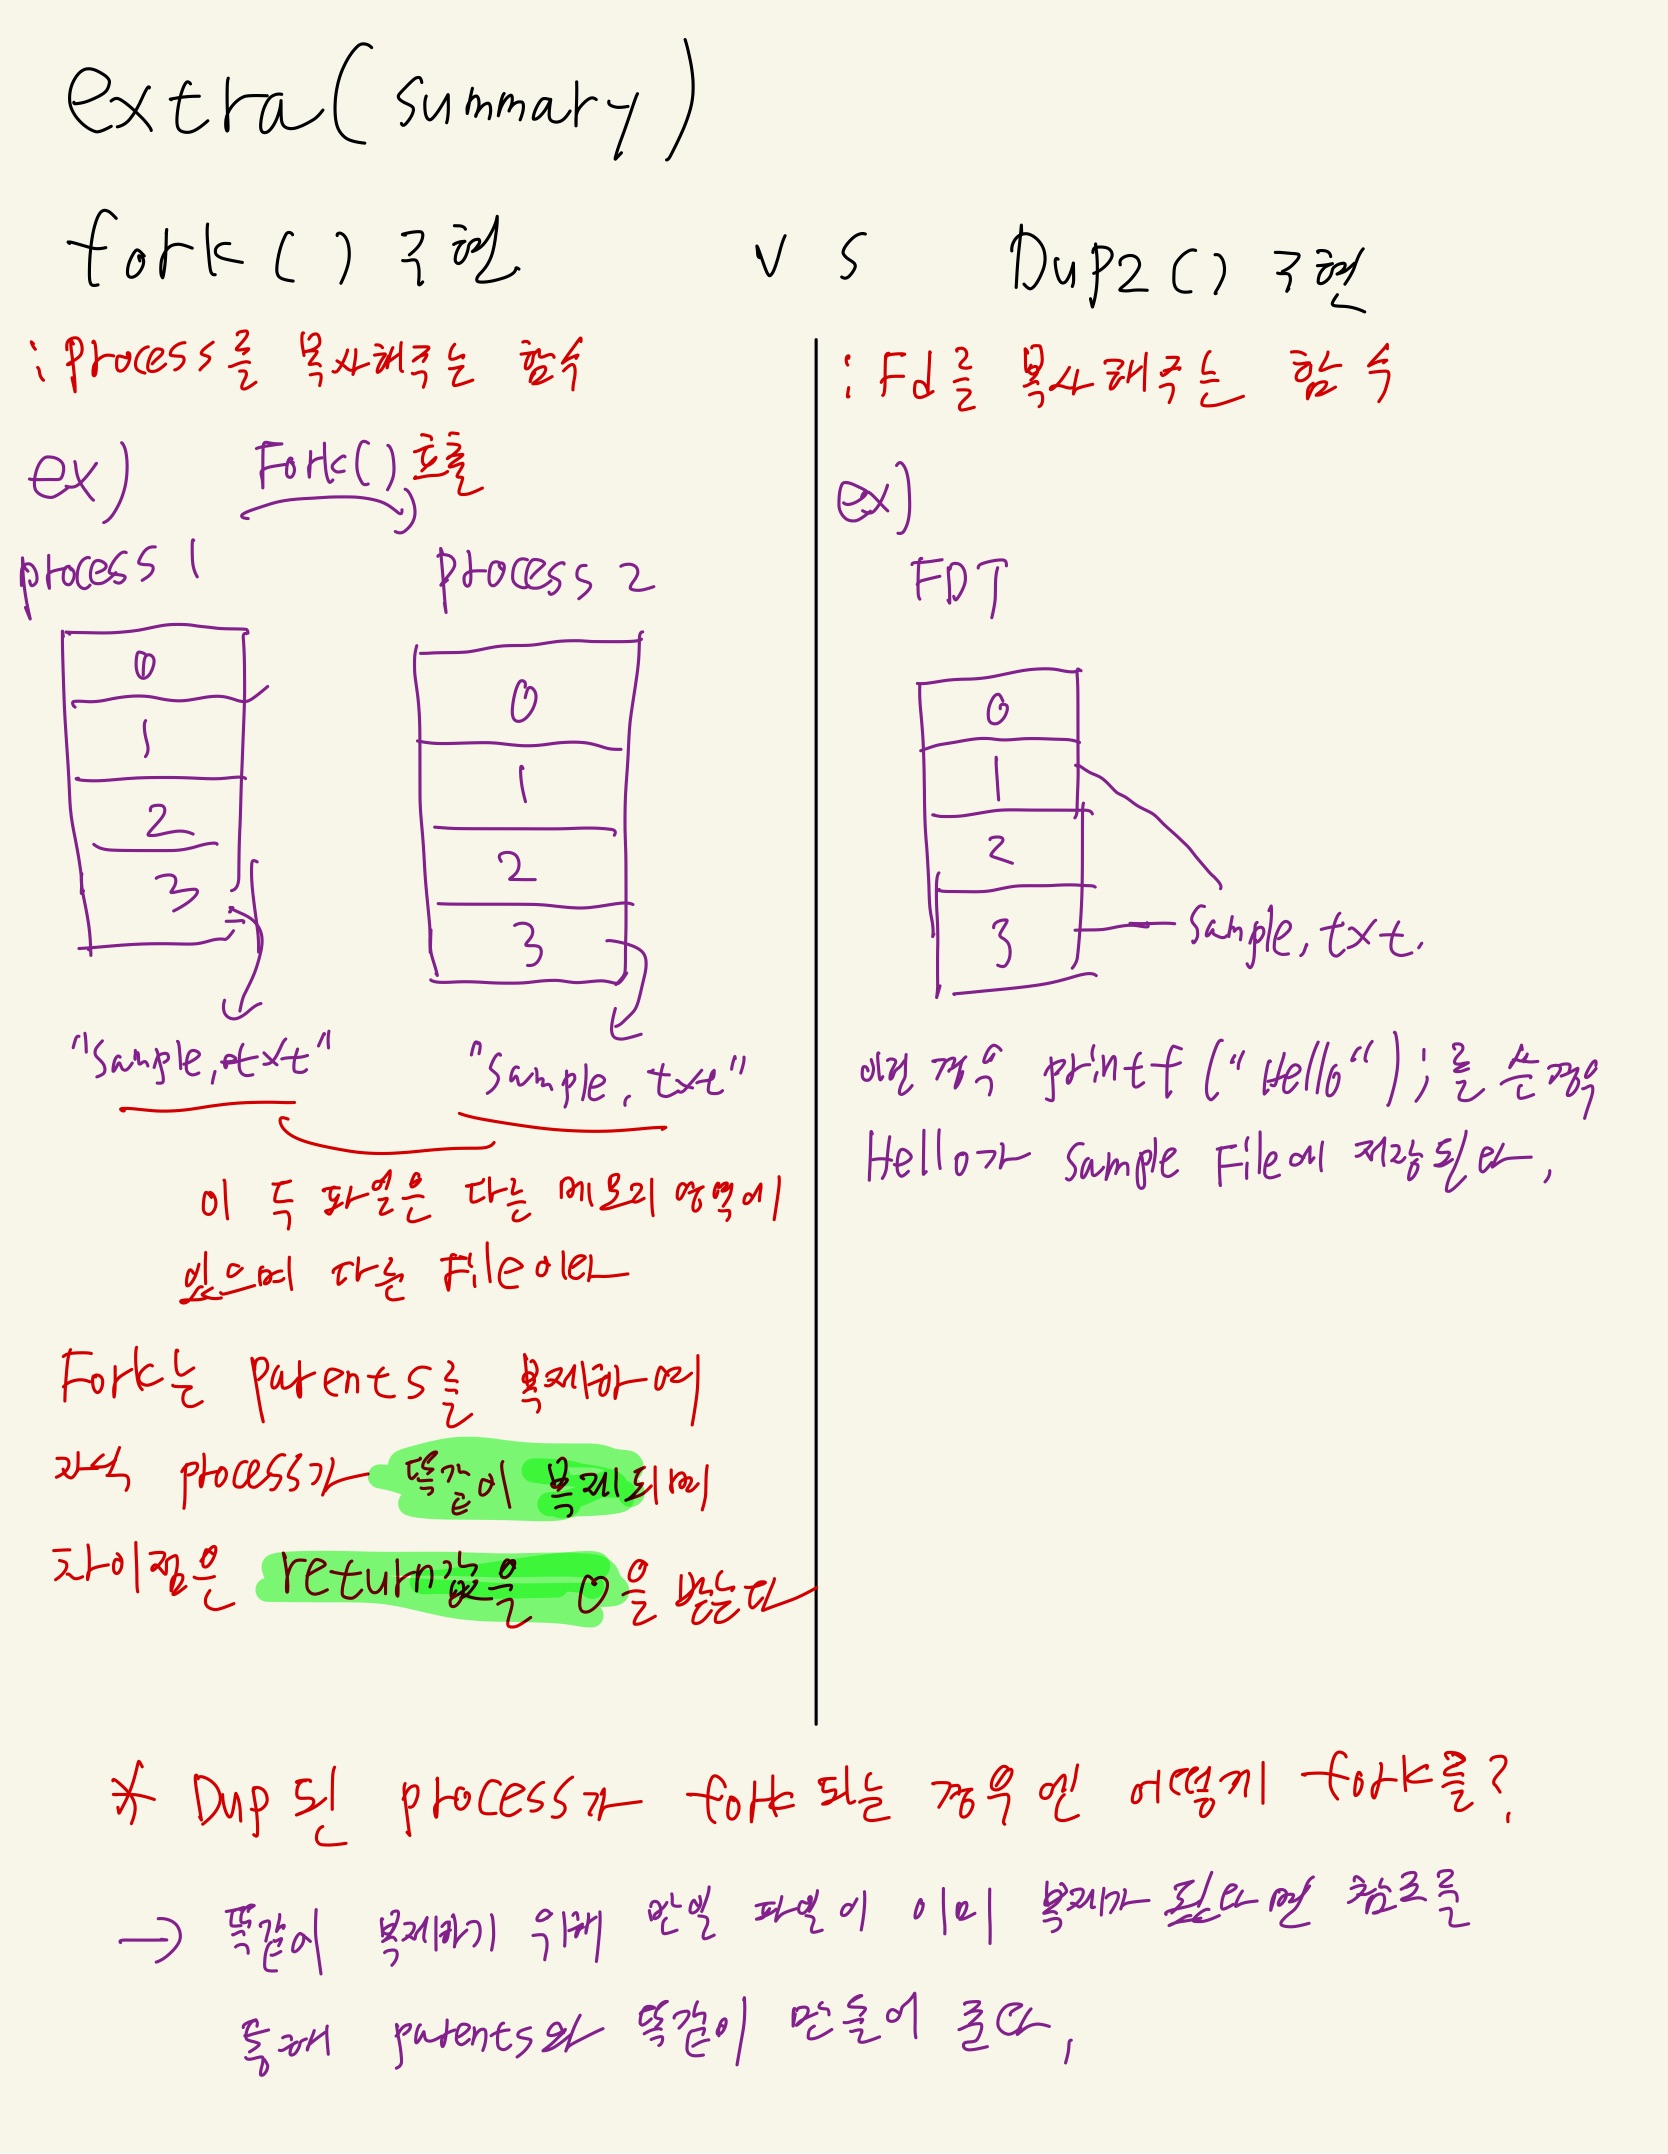 extra(summary)
fork() 구현 vs Dup2() 구현
: process를 복사해주는 함수
ex) Fork() 호출
process 1 process 2
0
1
2
3
0
1
2
3
"Sample.txt" "Sample.txt"
이 두 파일은 다른 메모리 영역에
있으며 다른 File이다
Fork는 parents를 복제하여
자식 process가 똑같이 복제되며
차이점은 return값을 0을 받는다
: Fd를 복사해주는 함수
ex)
FDT
0
1
2
3
Sample.txt.
이런 경우 printf("Hello"); 를 쓴 경우
Hello가 Sample File에 저장된다.
* Dup된 process가 fork 되는 경우엔 어떻게 fork를?
→ 똑같이 복제하기 위해 만일 파일이 이미 복제가 됬다면 참조를
통해 parents와 똑같이 만들어 준다.